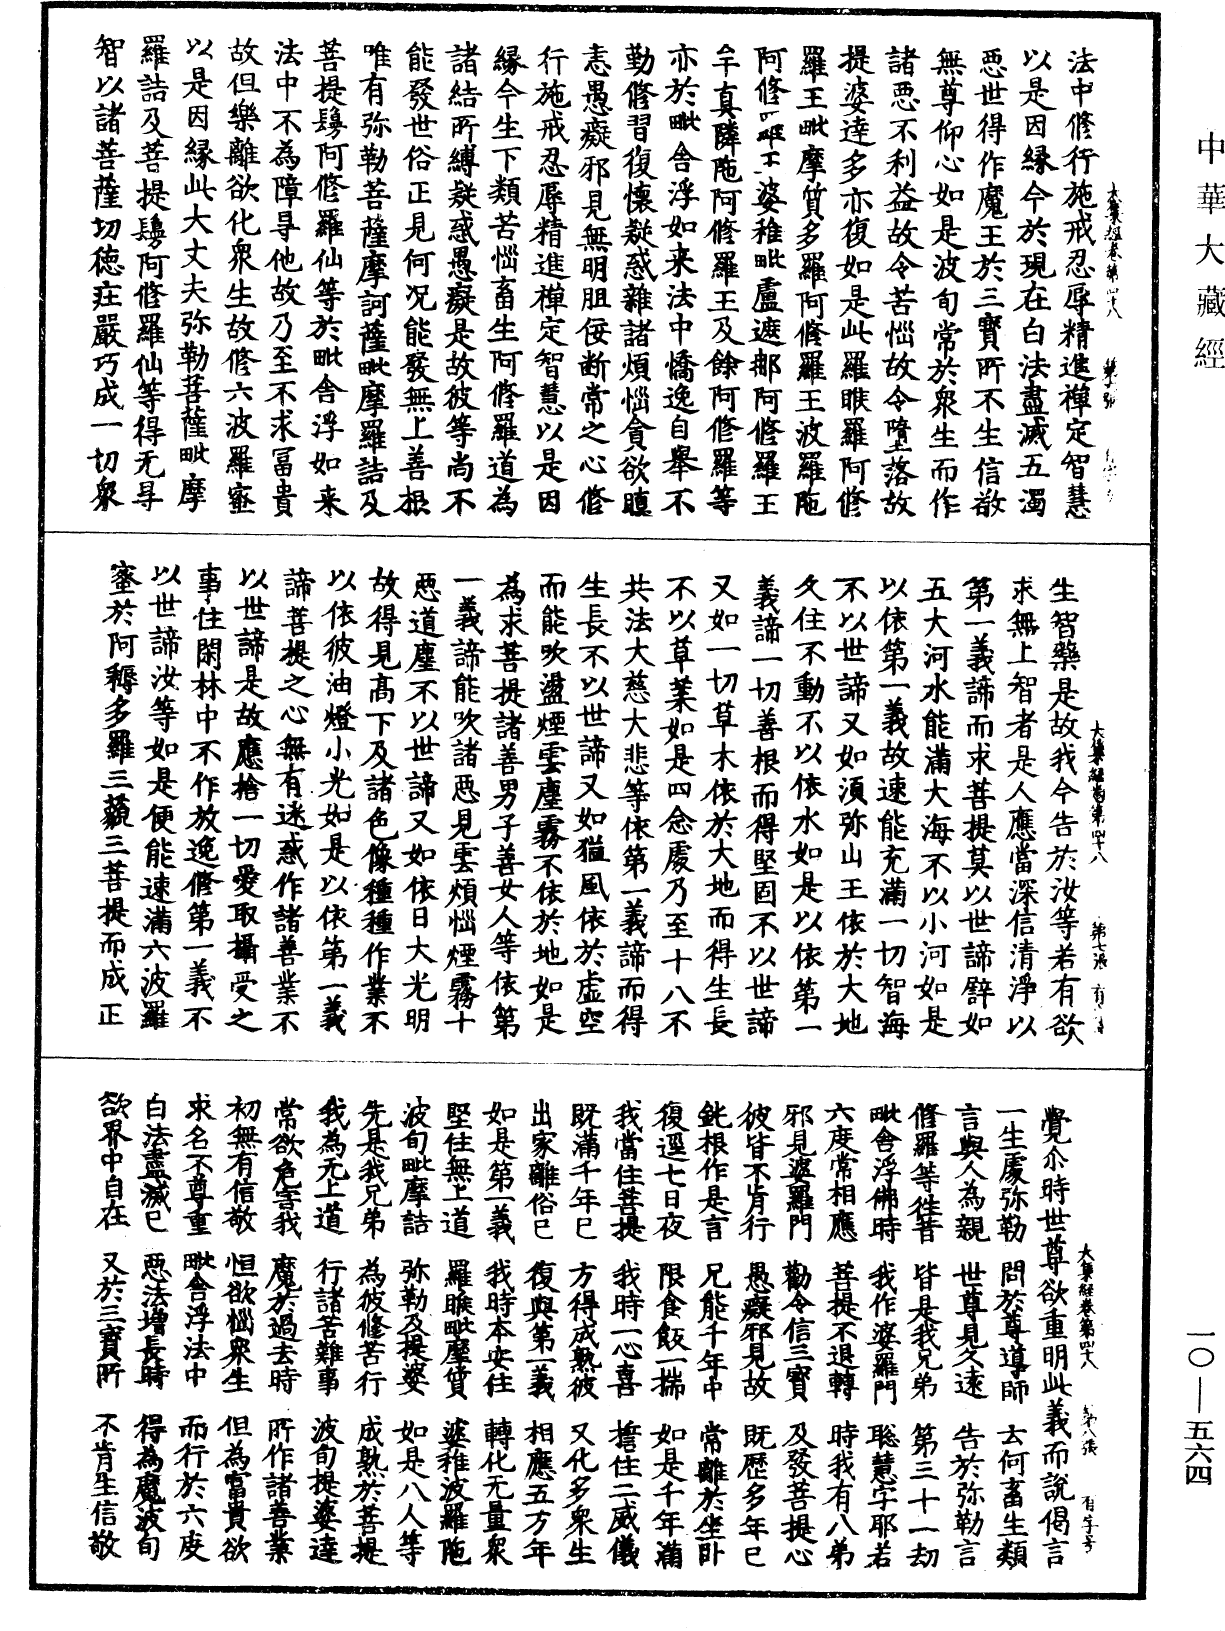 中華大藏經
大集經卷第四十八
法中修行施戒忍辱精進禪定智慧
以是因緣今於現在白法盡滅五濁
惡世得作魔王於三寶所不生信敬
無尊仰心如是波旬常於衆生而作
諸惡不利益故令苦惱故令墮落故
提婆達多亦復如是此羅睺羅阿修
羅王毗摩質多羅阿修羅王波羅陁
阿修羅王婆稚毗盧遮那阿修羅王
牟真隣陁阿修羅王及餘阿修羅等
亦於毗舍浮如来法中憍逸自舉不
勤修習復懷疑惑雜諸煩惱貪欲瞋
恚愚癡邪見無明胆佞断常之心修
行施戒忍辱精進禪定智慧以是因
緣今生下類苦惱畜生阿修羅道為
諸結所縛疑惑愚癡是故彼等尚不
能發世俗正見何况能發無上善根
唯有弥勒菩薩摩訶薩毗摩羅詰及
菩提鬘阿修羅仙等於毗舍浮如来
法中不為障㝵他故乃至不求冨貴
故但樂離欲化衆生故修六波羅蜜
以是因緣此大丈夫弥勒菩薩毗摩
羅詰及菩提鬘阿修羅仙等得无㝵
智以諸菩薩功德庄嚴巧成一切衆
大集經卷第四十八 第七張
生智藥是故我今告於汝等若有欲
求無上智者是人應當深信清淨以
第一義諦而求菩提莫以世諦辟如
五大河水能滿大海不以小河如是
以依第一義故速能充滿一切智海
不以世諦又如須弥山王依於大地
久住不動不以依水如是以依第一
義諦一切善根而得堅固不以世諦
又如一切草木依於大地而得生長
不以草葉如是四念處乃至十八不
共法大慈大悲等依第一義諦而得
生長不以世諦又如猛風依於虛空
而能吹盪煙雲塵霧不依於地如是
為求菩提諸善男子善女人等依第
一義諦能吹諸惡見雲煩惱煙霧十
惡道塵不以世諦又如依日大光明
故得見高下及諸色像種種作業不
以依彼油燈小光如是以依第一義
諦菩提之心無有迷惑作諸善業不
以世諦是故應捨一切愛取攝受之
事住閑林中不作放逸修第一義不
以世諦汝等如是便能速滿六波羅
蜜於阿耨多羅三藐三菩提而成正
大集經卷第四十八 第八張 有字号
覺尒時世尊欲重明此義而說偈言
一生處弥勒 問於尊導師 云何畜生類
言與人為親 世尊見久遠 告於弥勒言
修羅等往昔 皆是我兄弟 第三十一劫
毗舍浮佛時 我作婆羅門 聡慧字耶若
六度常相應 菩提不退轉 時我有八弟
邪見婆羅門 勸令信三寶 及發菩提心
彼皆不肯行 愚癡邪見故 既歷多年已
鈍根作是言 兄能千年中 常離於坐卧
復逕七日夜 限食飯一揣 如是千年滿
我當住菩提 我時一心喜 擔住二威儀
既滿千年已 方得成熟彼 又化多衆生
出家離俗已 復與第一義 相應五万年
如是第一義 我時本安住 轉化无量衆
堅住無上道 羅睺毗摩質 婆稚波羅陁
波旬毗摩詰 弥勒及提婆 如是八人等
先是我兄弟 為彼修苦行 成熟於菩提
我為无上道 行諸苦難事 波旬提婆達
常欲危害我 魔於過去時 所作諸善業
初無有信敬 恒欲惱衆生 但為富貴欲
求名不尊重 毗舍浮法中 而行於六度
白法盡滅已 惡法增長時 得為魔波旬
欲界中自在 又於三寶所 不肯生信敬
一〇—五六四